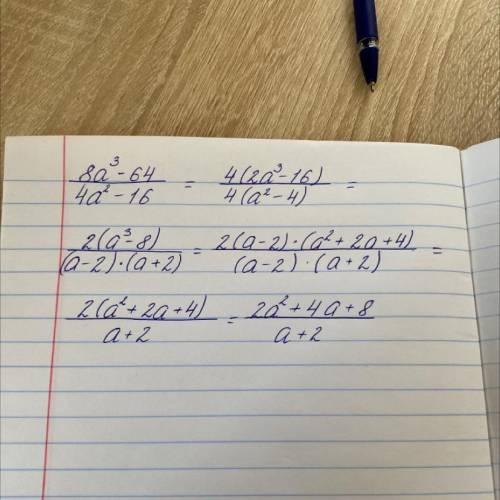 (8a³-64)/(4a²-16) = (4(2a³-16))/(4(a²-4)) =
(2(a³-8))/((a-2)·(a+2)) = (2(a-2)·(a²+2a+4))/((a-2)·(a+2)) =
(2(a²+2a+4))/(a+2) = (2a²+4a+8)/(a+2)